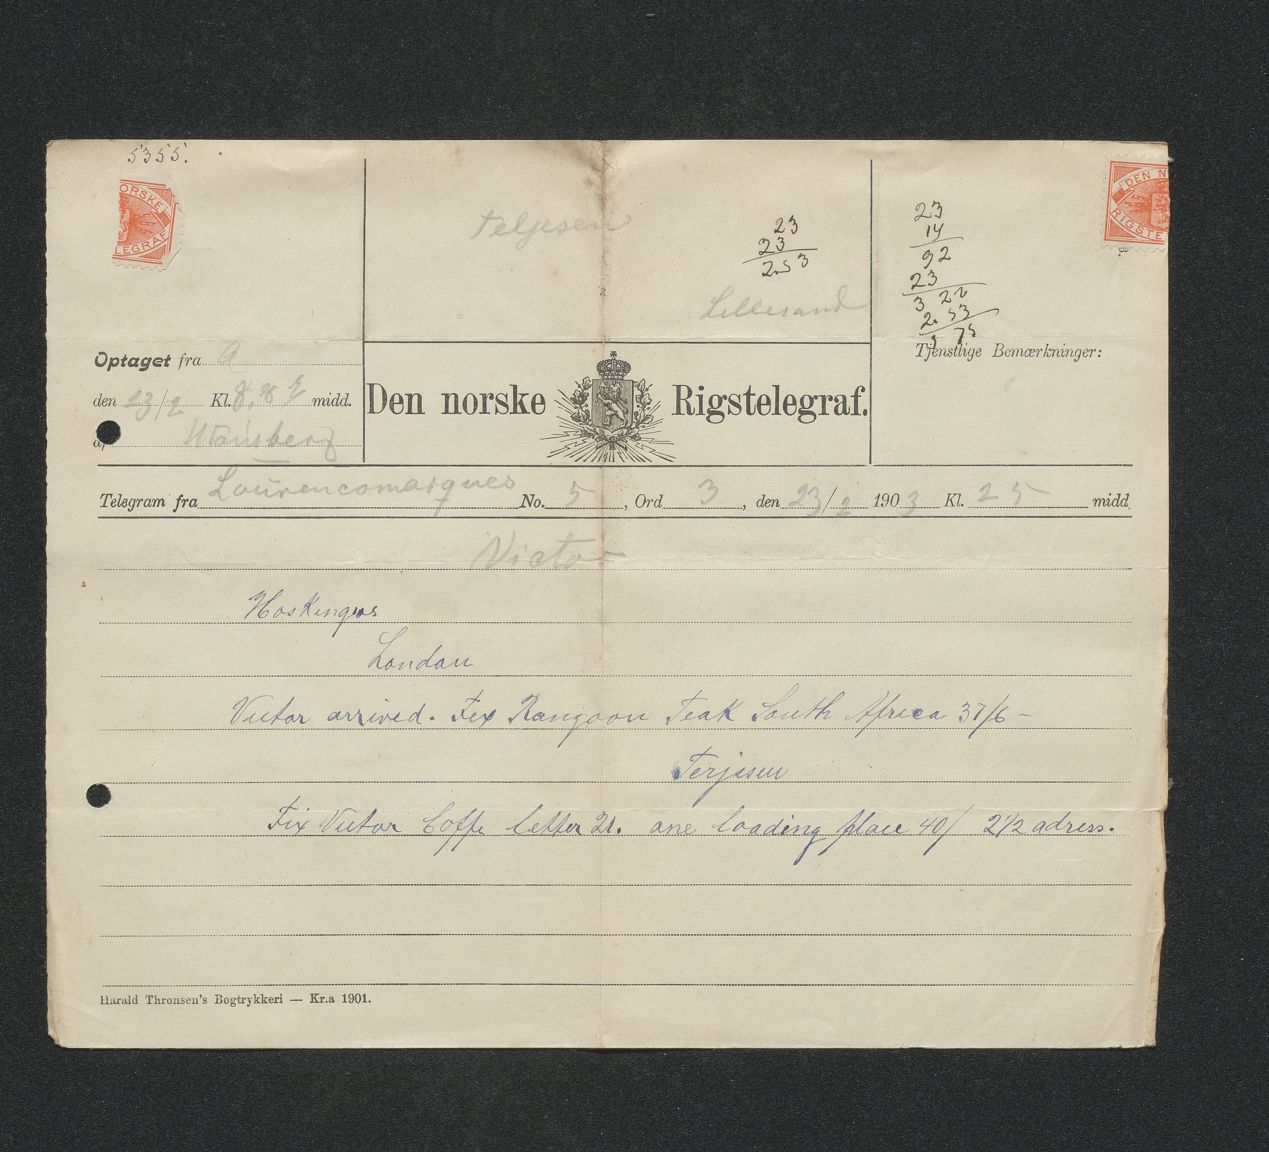 5355.
ORSKE
LEGRAF
DEN N
RIGSTE
Teljesen
Lillesand
23
23
2.53
23
14
92
23
3 22
2.53
5 75
Optaget fra A
den 23/2 Kl. 8,8 midd.
af
Den norske Rigstelegraf.
Tjenstlige Bemærkninger:
Telegram fra Lourencomarques No. 5, Ord 3, den 23/2 1903 Kl. 25 midd
Victor
Hoskingws
London
Victor arrived. Fix Rangoon Teak South Africa 37/6 -
Terjesen
Fix Victor Coffe letter 21. one loading place 40/ 2½ adress.
Harald Thronsen's Bogtrykkeri — Kr.a 1901.